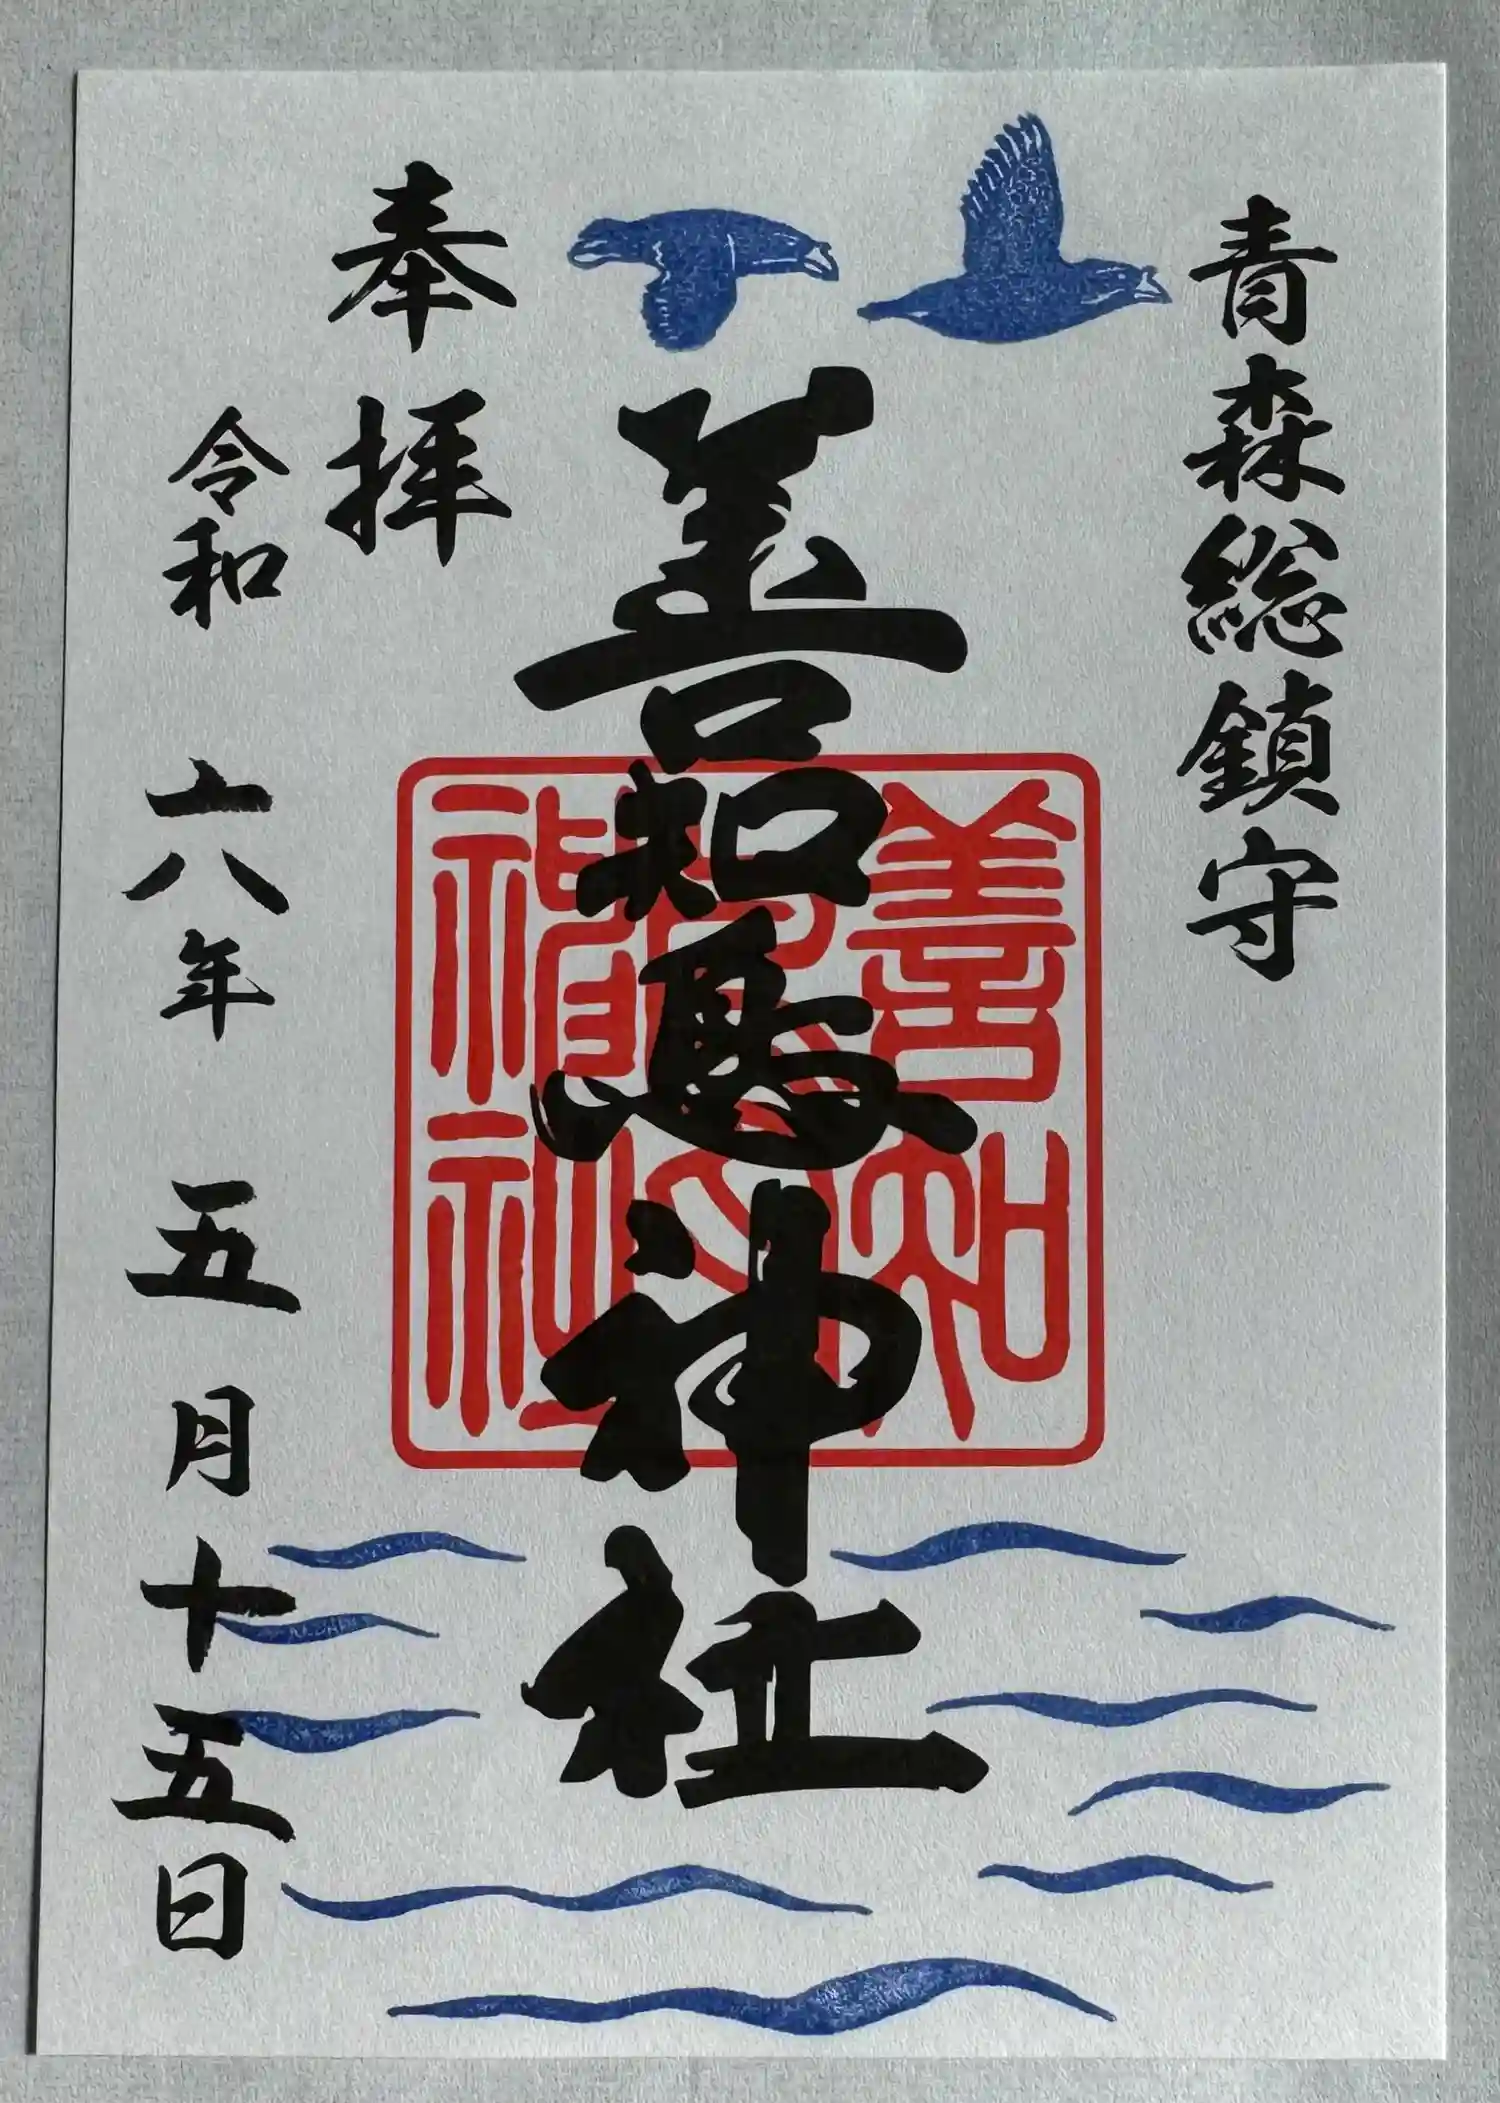 青森総鎮守
善知鳥神社
善知鳥神社
奉拝
令和六年五月十五日